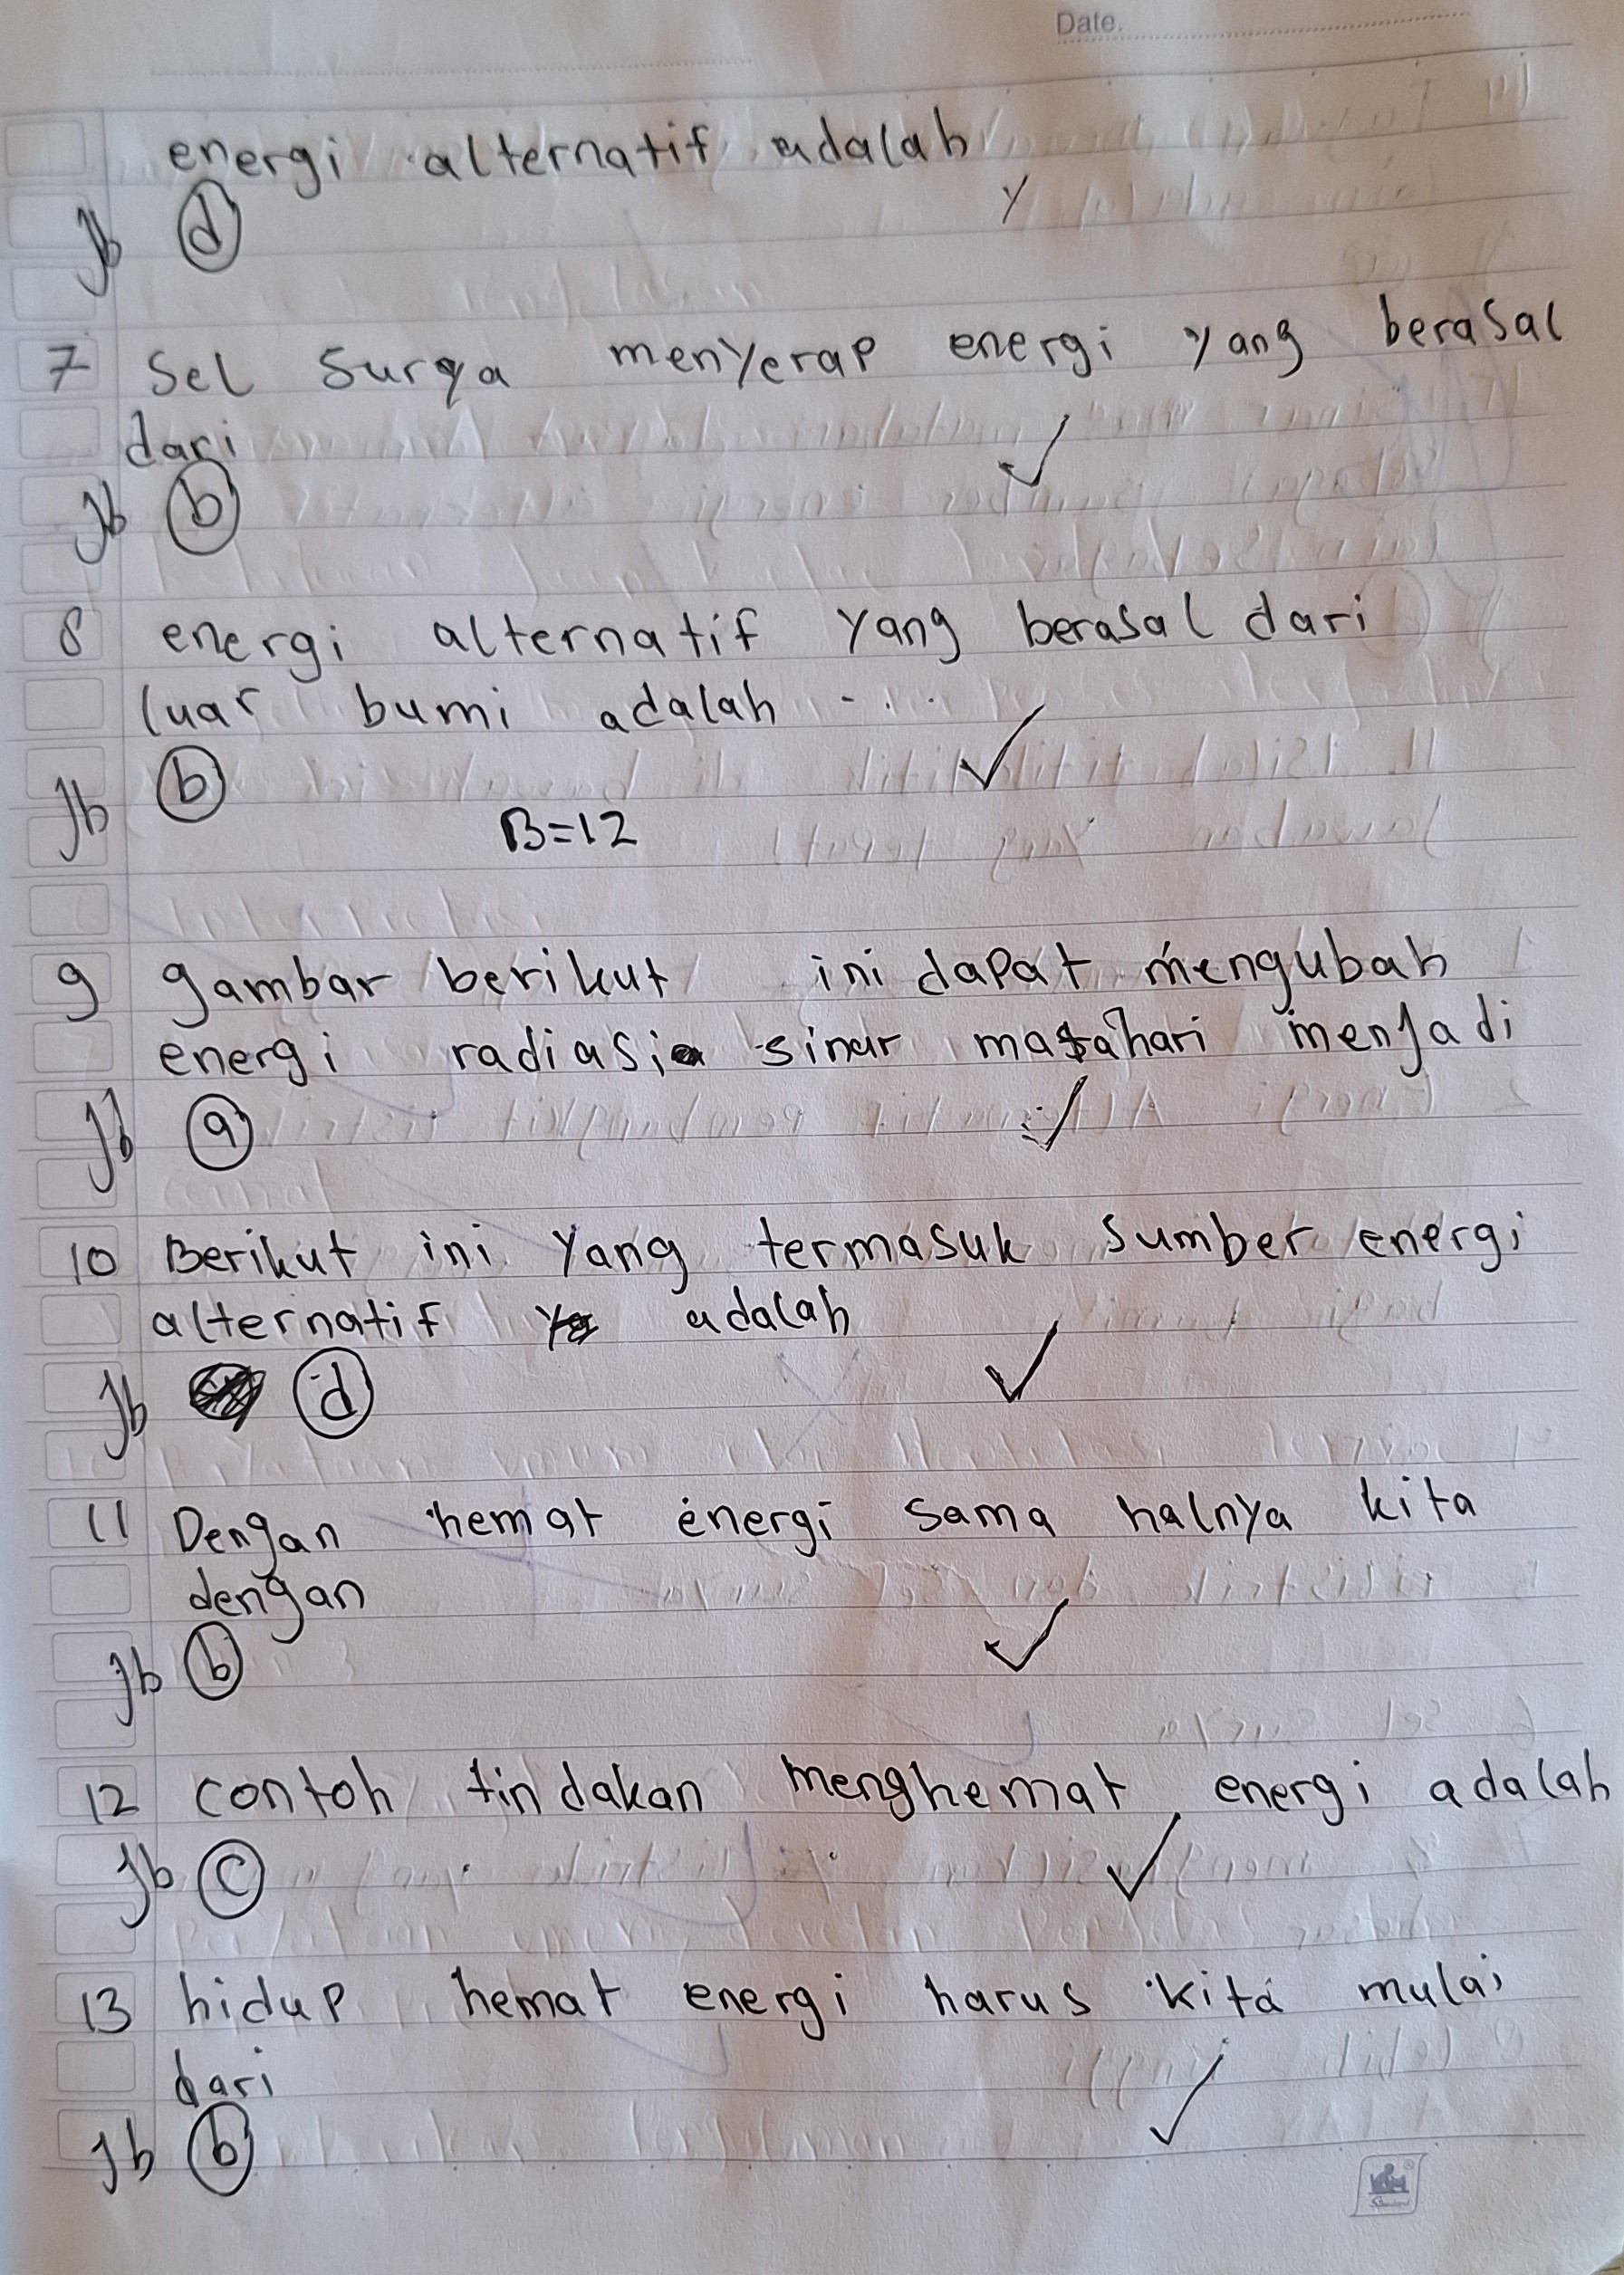 Date.
energi alternatif adalah
jb d
7 Sel Surya menyerap energi yang berasal
dari
jb b
8 energi alternatif yang berasal dari
luar bumi adalah ....
jb b
B=12
9 gambar berikut ini dapat mengubah
energi radiasi sinar matahari menjadi
jb a
10 Berikut ini yang termasuk sumber energi
alternatif adalah
jb d
11 Dengan hemat energi sama halnya kita
dengan
jb b
12 contoh tindakan menghemat energi adalah
jb c
13 hidup hemat energi harus kita mulai
dari
jb b